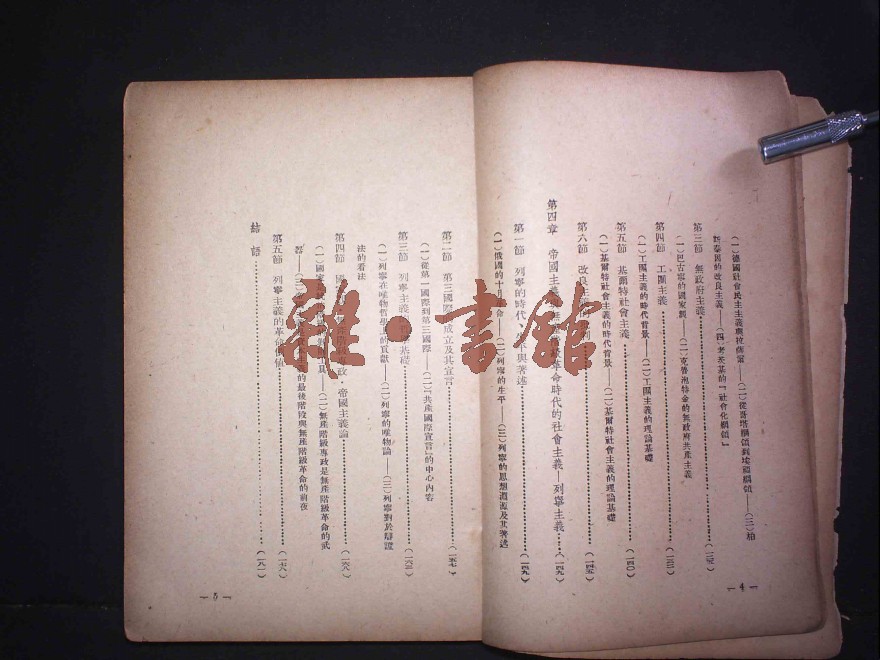 (一)德國社會民主主義與拉薩爾——(二)從哥塔綱領到埃福綱領——(三)柏
斯泰因的改良主義——(四)考茨基的『社會化綱領』
第三節 無政府主義
(一)巴古寧的國家觀——(二)克魯泡特金的無政府共產主義
第四節 工團主義
(一)工團主義的時代背景——(二)工團主義的理論基礎
第五節 基爾特社會主義 (一四〇)
(一)基爾特社會主義的時代背景——(二)基爾特社會主義的理論基礎
第六節 改良主義 (一四五)
第四章 帝國主義 無產 革命時代的社會主義—列寧主義 (一四九)
第一節 列寧的時代 與著述 (一四九)
(一)俄國的十月 命——(二)列寧的生平——(三)列寧的思想淵源及其著述
— 4 —
第二節 第三國際 成立及其宣言 (一五七)
(一)從第一國際到第三國際——(二)『共產國際宣言』的中心內容
第三節 列寧主義 基礎
(一)列寧在唯物哲學 的貢獻——(二)列寧的唯物論——(三)列寧對於辯證
法的看法
第四節 國 專政・帝國主義論 (一六八)
(一)國家 具——(二)無產階級專政是無產階級革命的武
器——(三) 的最後階段與無產階級革命的前夜
第五節 列寧主義的革命價值 (一七八)
結語 (一八一)
— 5 —
雜・書館